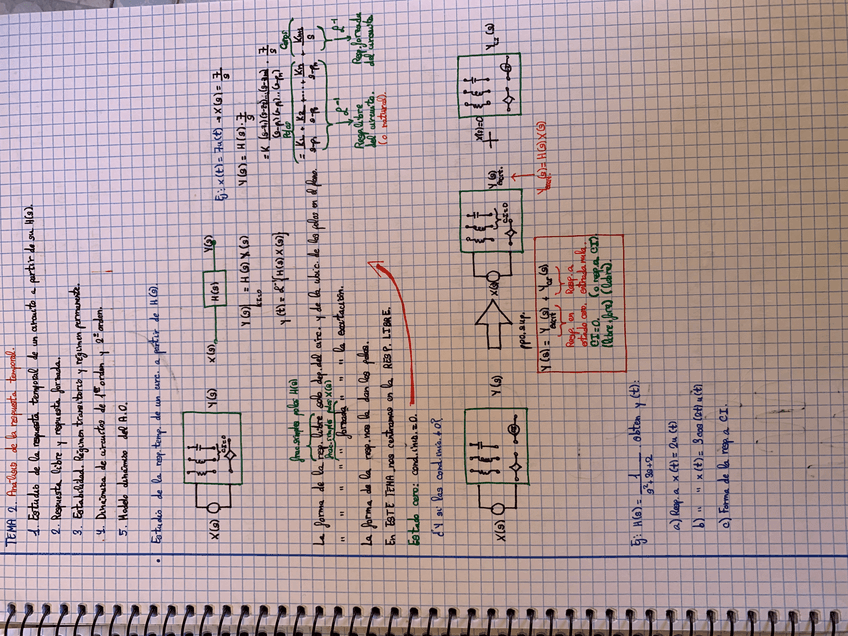 TEMA 2. Análisis de la respuesta temporal.
1. Estudio de la respuesta temporal de un circuito a partir de su H(s).
2. Respuesta libre y respuesta forzada.
3. Estabilidad. Régimen transitorio y régimen permanente.
4. Dinámica de circuitos de 1er orden y 2º orden.
5. Modelo dinámico del A.O.
• Estudio de la resp. temp. de un circ. a partir de H(s)
X(s) CI=0 Y(s)
X(s) H(s) Y(s)
Y(s) = H(s) X(s)
CI=0
y(t) = L⁻¹{H(s) X(s)}
Ej: x(t) = 7u(t) → X(s) = 7/s
Y(s) = H(s) · 7/s
= K (s-z1)(s-z2)...(s-zm) / (s-p1)(s-p2)...(s-pn) · 7/s
= K1/s-p1 + K2/s-p2 + ... + Kn/s-pn + Kn+1/s
L⁻¹ L⁻¹
Resp. libre del circuito. (o natural)
Resp. forzada del circuito
frac. simples polos H(s)
La forma de la resp. libre solo dep. del circ. y de la ubic. de los polos en el plano.
frac. simples polos X(s)
" " " " " forzada " " " la excitación.
La forma de la resp. nos la dan los polos.
En ESTE TEMA nos centramos en la RESP. LIBRE.
Estado cero: cond. inic. = 0.
¿Y si las cond. inic. ≠ 0?
X(s) Y(s)
ppo. sup.
X(s) CI=0 Y(s)
x(t)=0
Y(s) = H(s) X(s)
Y(s) = Y(s) + Y(s)
Resp. en estado cero CI=0. (libre, forz)
Resp. a entrada nula. (o resp. a CI) (libre).
Ej: H(s) = 1 / s²+3s+2 obten y(t):
a) Resp. a x(t) = 2u(t)
b) " " x(t) = 3cos(2t) u(t)
c) Forma de la resp. a CI.